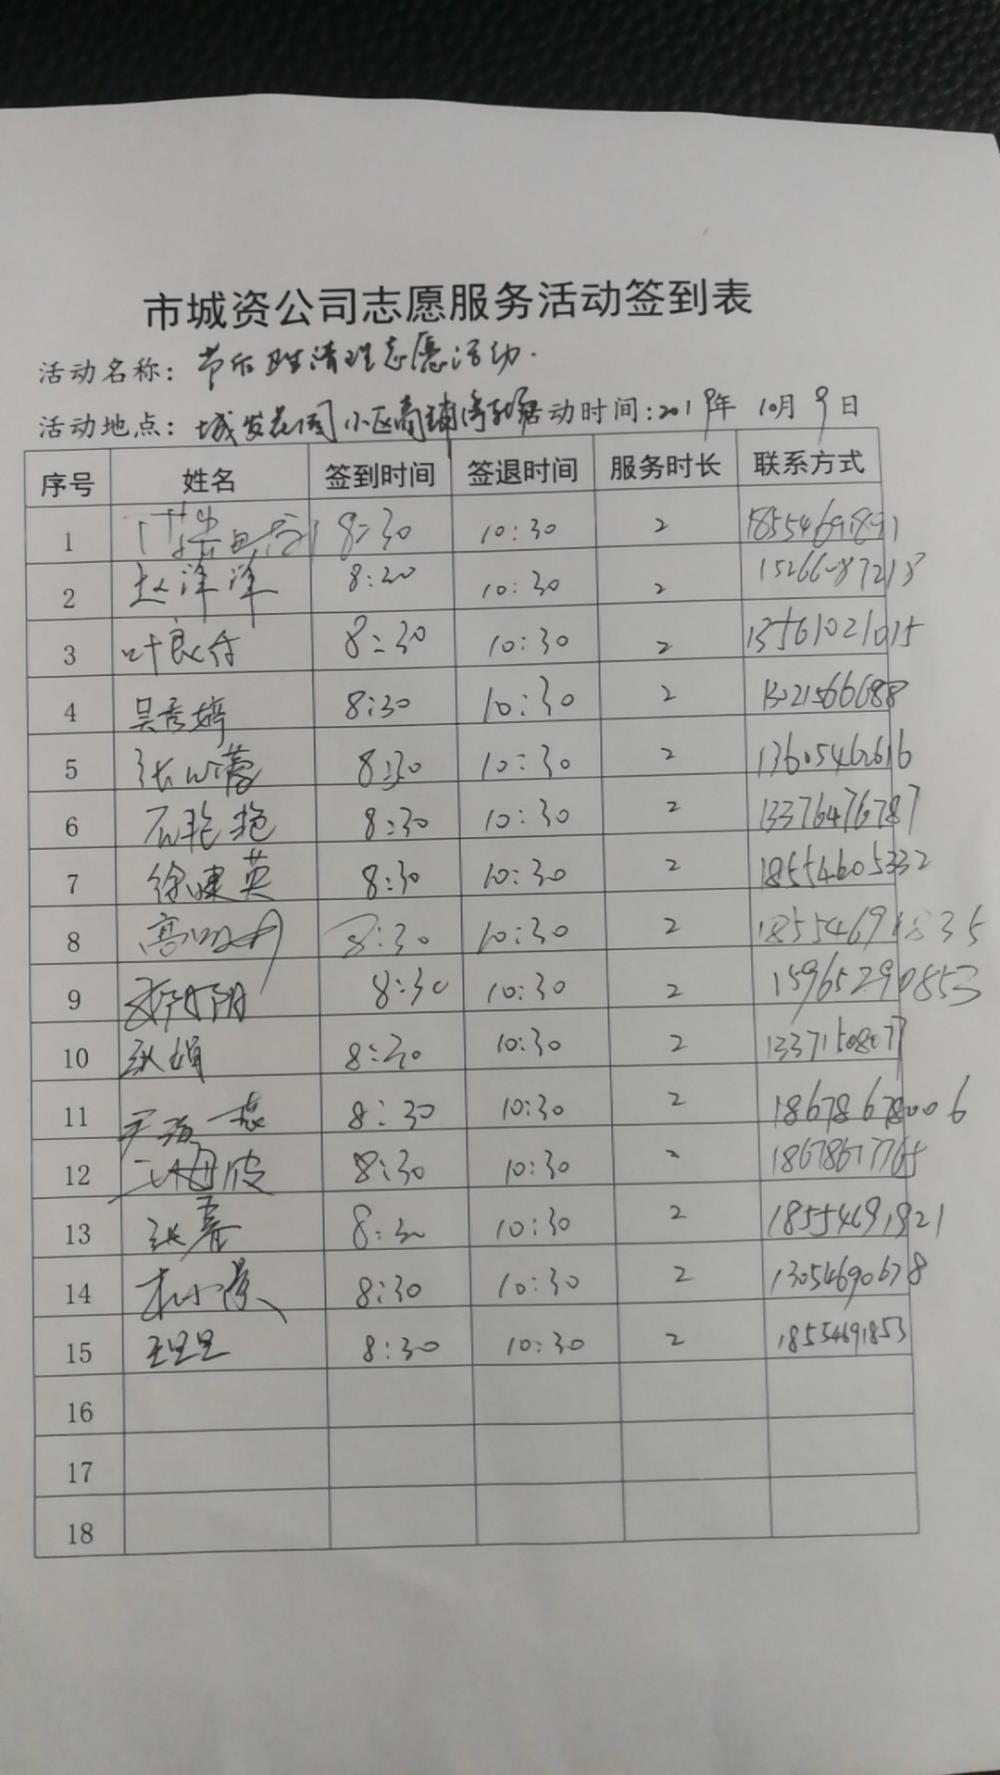 市城资公司志愿服务活动签到表
活动名称：节后卫生清理志愿活动.
活动地点：城发花园小区商铺停车场 活动时间：2019年 10月 9日
序号 姓名 签到时间 签退时间 服务时长 联系方式
1 8:30 10:30 2 18554691891
2 赵洋洋 8:30 10:30 2 15266087213
3 叶良仔 8:30 10:30 2 13561021015
4 吴秀婷 8:30 10:30 2 13021566688
5 张心蕾 8:30 10:30 2 13605462616
6 石艳艳 8:30 10:30 2 13376476787
7 徐健英 8:30 10:30 2 18554605332
8 8:30 10:30 2 18554691835
9 邓阳阳 8:30 10:30 2 15965290853
10 耿娟 8:30 10:30 2 13371508077
11 8:30 10:30 2 18678678006
12 8:30 10:30 2 18678677765
13 张春 8:30 10:30 2 18554691821
14 杜小霞 8:30 10:30 2 13054690678
15 王里里 8:30 10:30 2 18554691853
16
17
18